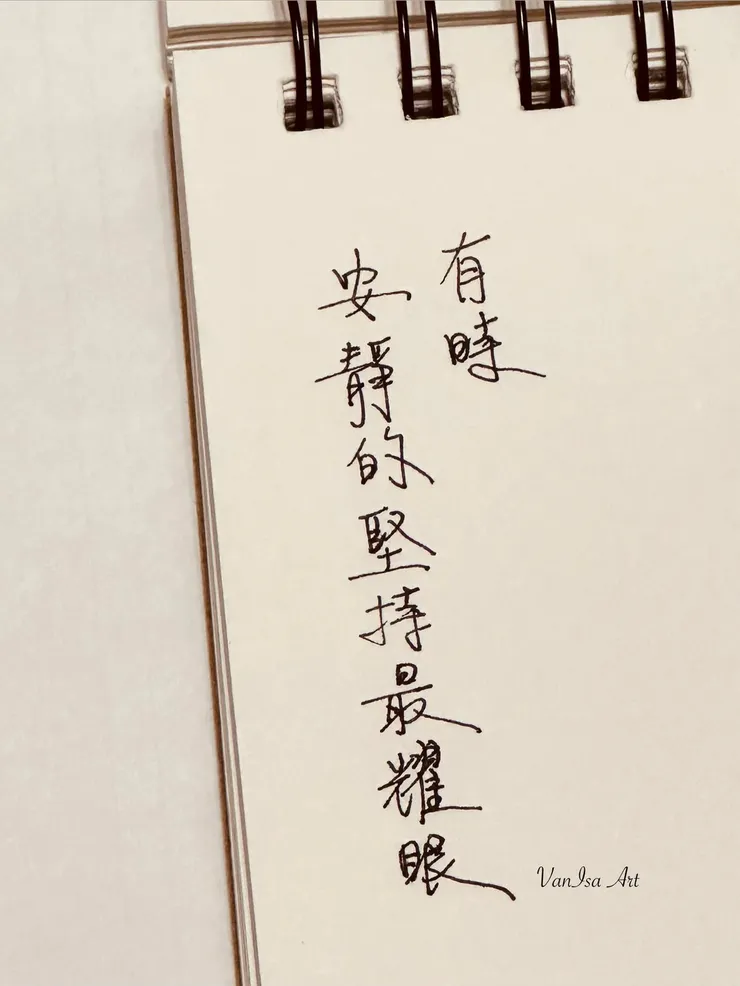 有時
安靜的堅持最耀眼
VanIsa Art